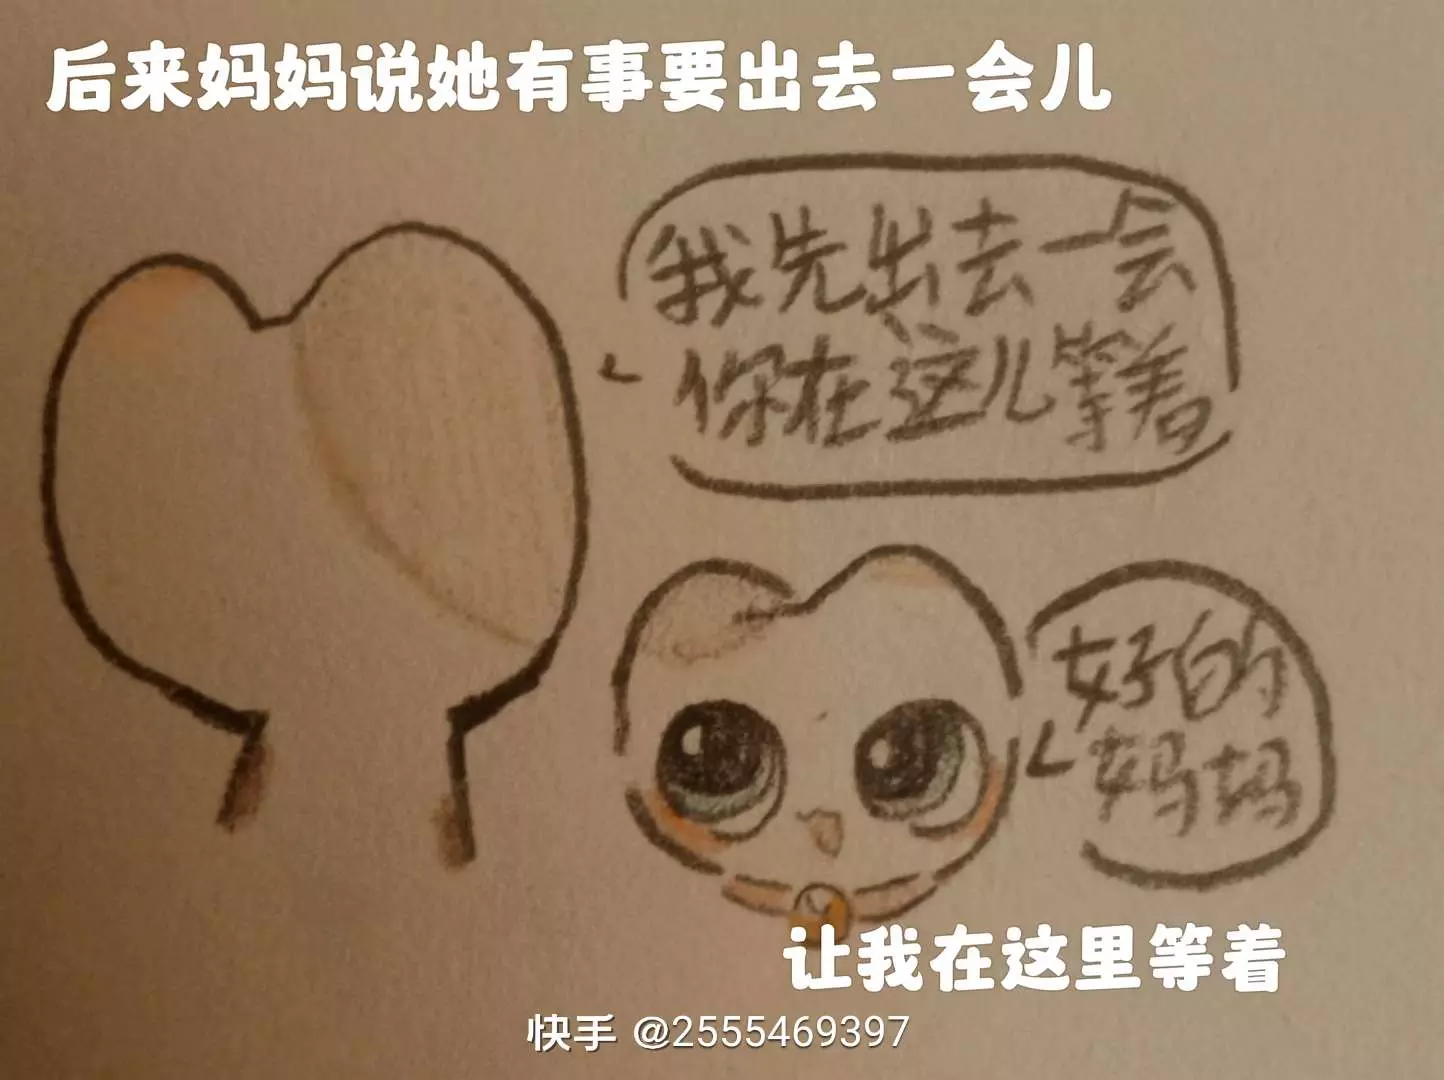 后来妈妈说她有事要出去一会儿
我先出去一会
你在这儿等着
好的
妈妈
让我在这里等着
快手 @2555469397